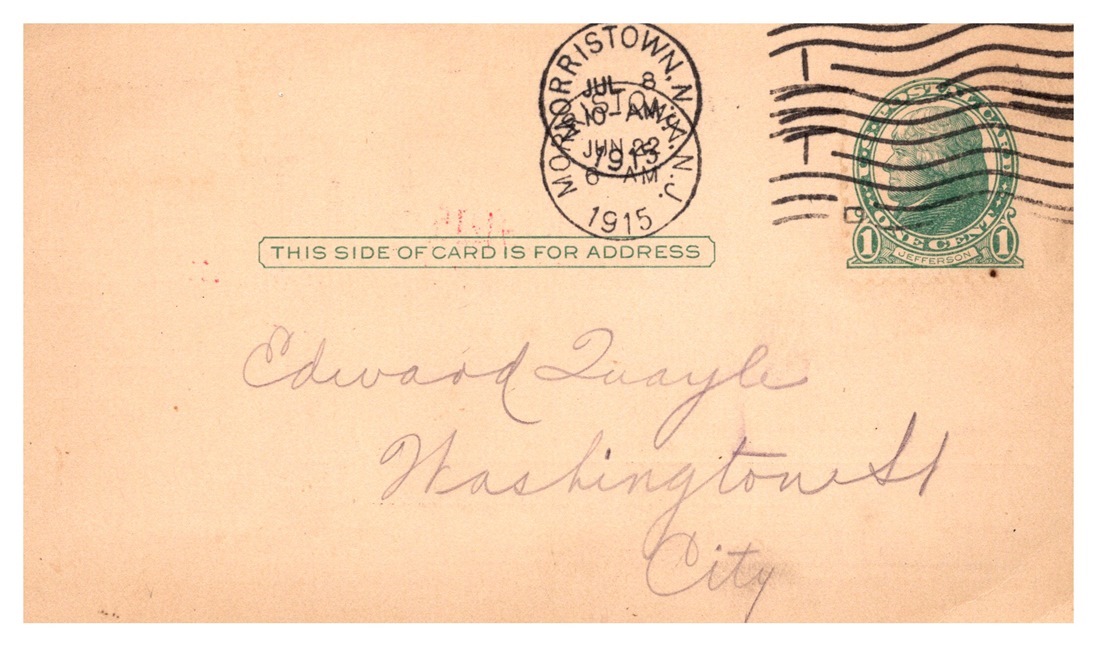 MORRISTOWN, N.J.
JUL 8
10-AM
1915
MORRISTOWN, N.J.
JUN 22
6 AM
1915
U.S. POSTAL CARD
ONE CENT
1 1
JEFFERSON
THIS SIDE OF CARD IS FOR ADDRESS
Edward Quayle
Washington St
City